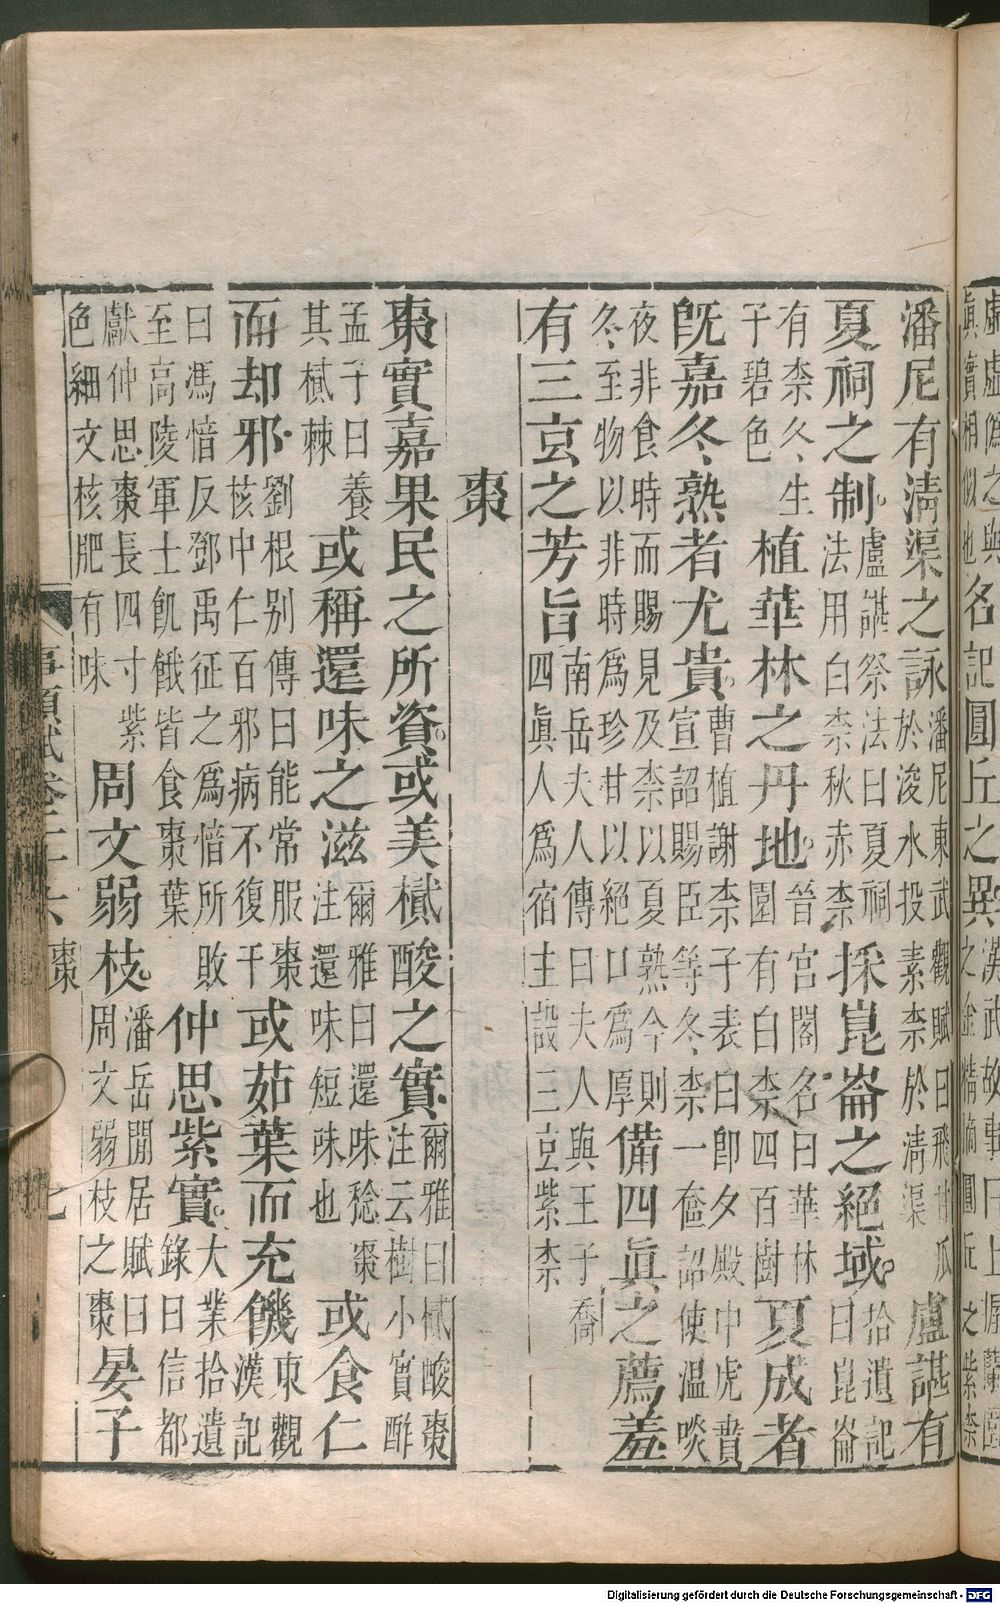 虛虛僞之與真實相似也名記圓丘之異漢武故事曰上握蘭園之金精摘圓丘之紫柰
潘尼有清渠之詠潘尼東武觀賦曰飛甘瓜於浚水投素柰於清渠盧諶有
夏祠之制盧諶祭法曰夏祠法用白柰秋赤柰採崑崙之絕域拾遺記曰崑崙
有柰冬生子碧色植華林之丹地晉宮閣名曰華林園有白柰四百樹夏成者
既嘉冬熟者尤貴曹植謝柰子表曰即夕殿中虎賁宣詔賜臣等冬柰一奩詔使溫啖
夜非食時而賜見及柰以夏熟今則冬至物以非時爲珍甘以絕口爲厚備四眞之薦羞
有三玄之芳旨南岳夫人傳曰夫人與王子喬四眞人爲宿主設三玄紫柰
棗
棗實嘉果民之所資或美樲酸之實爾雅曰樲酸棗注云樹小實酢
孟子曰養其樲棘或稱還味之滋爾雅曰還味稔棗注還味短味也或食仁
而却邪劉根別傳曰能常服棗核中仁百邪病不復干或茹葉而充饑東觀漢記
曰馮愔反鄧禹征之爲愔所敗至高陵軍士飢餓皆食棗葉仲思紫實大業拾遺錄曰信都
獻仲思棗長四寸紫色細文核肥有味周文弱枝潘岳閒居賦曰周文弱枝之棗晏子
事類賦卷二十六 棗 七
Digitalisierung gefördert durch die Deutsche Forschungsgemeinschaft - DFG